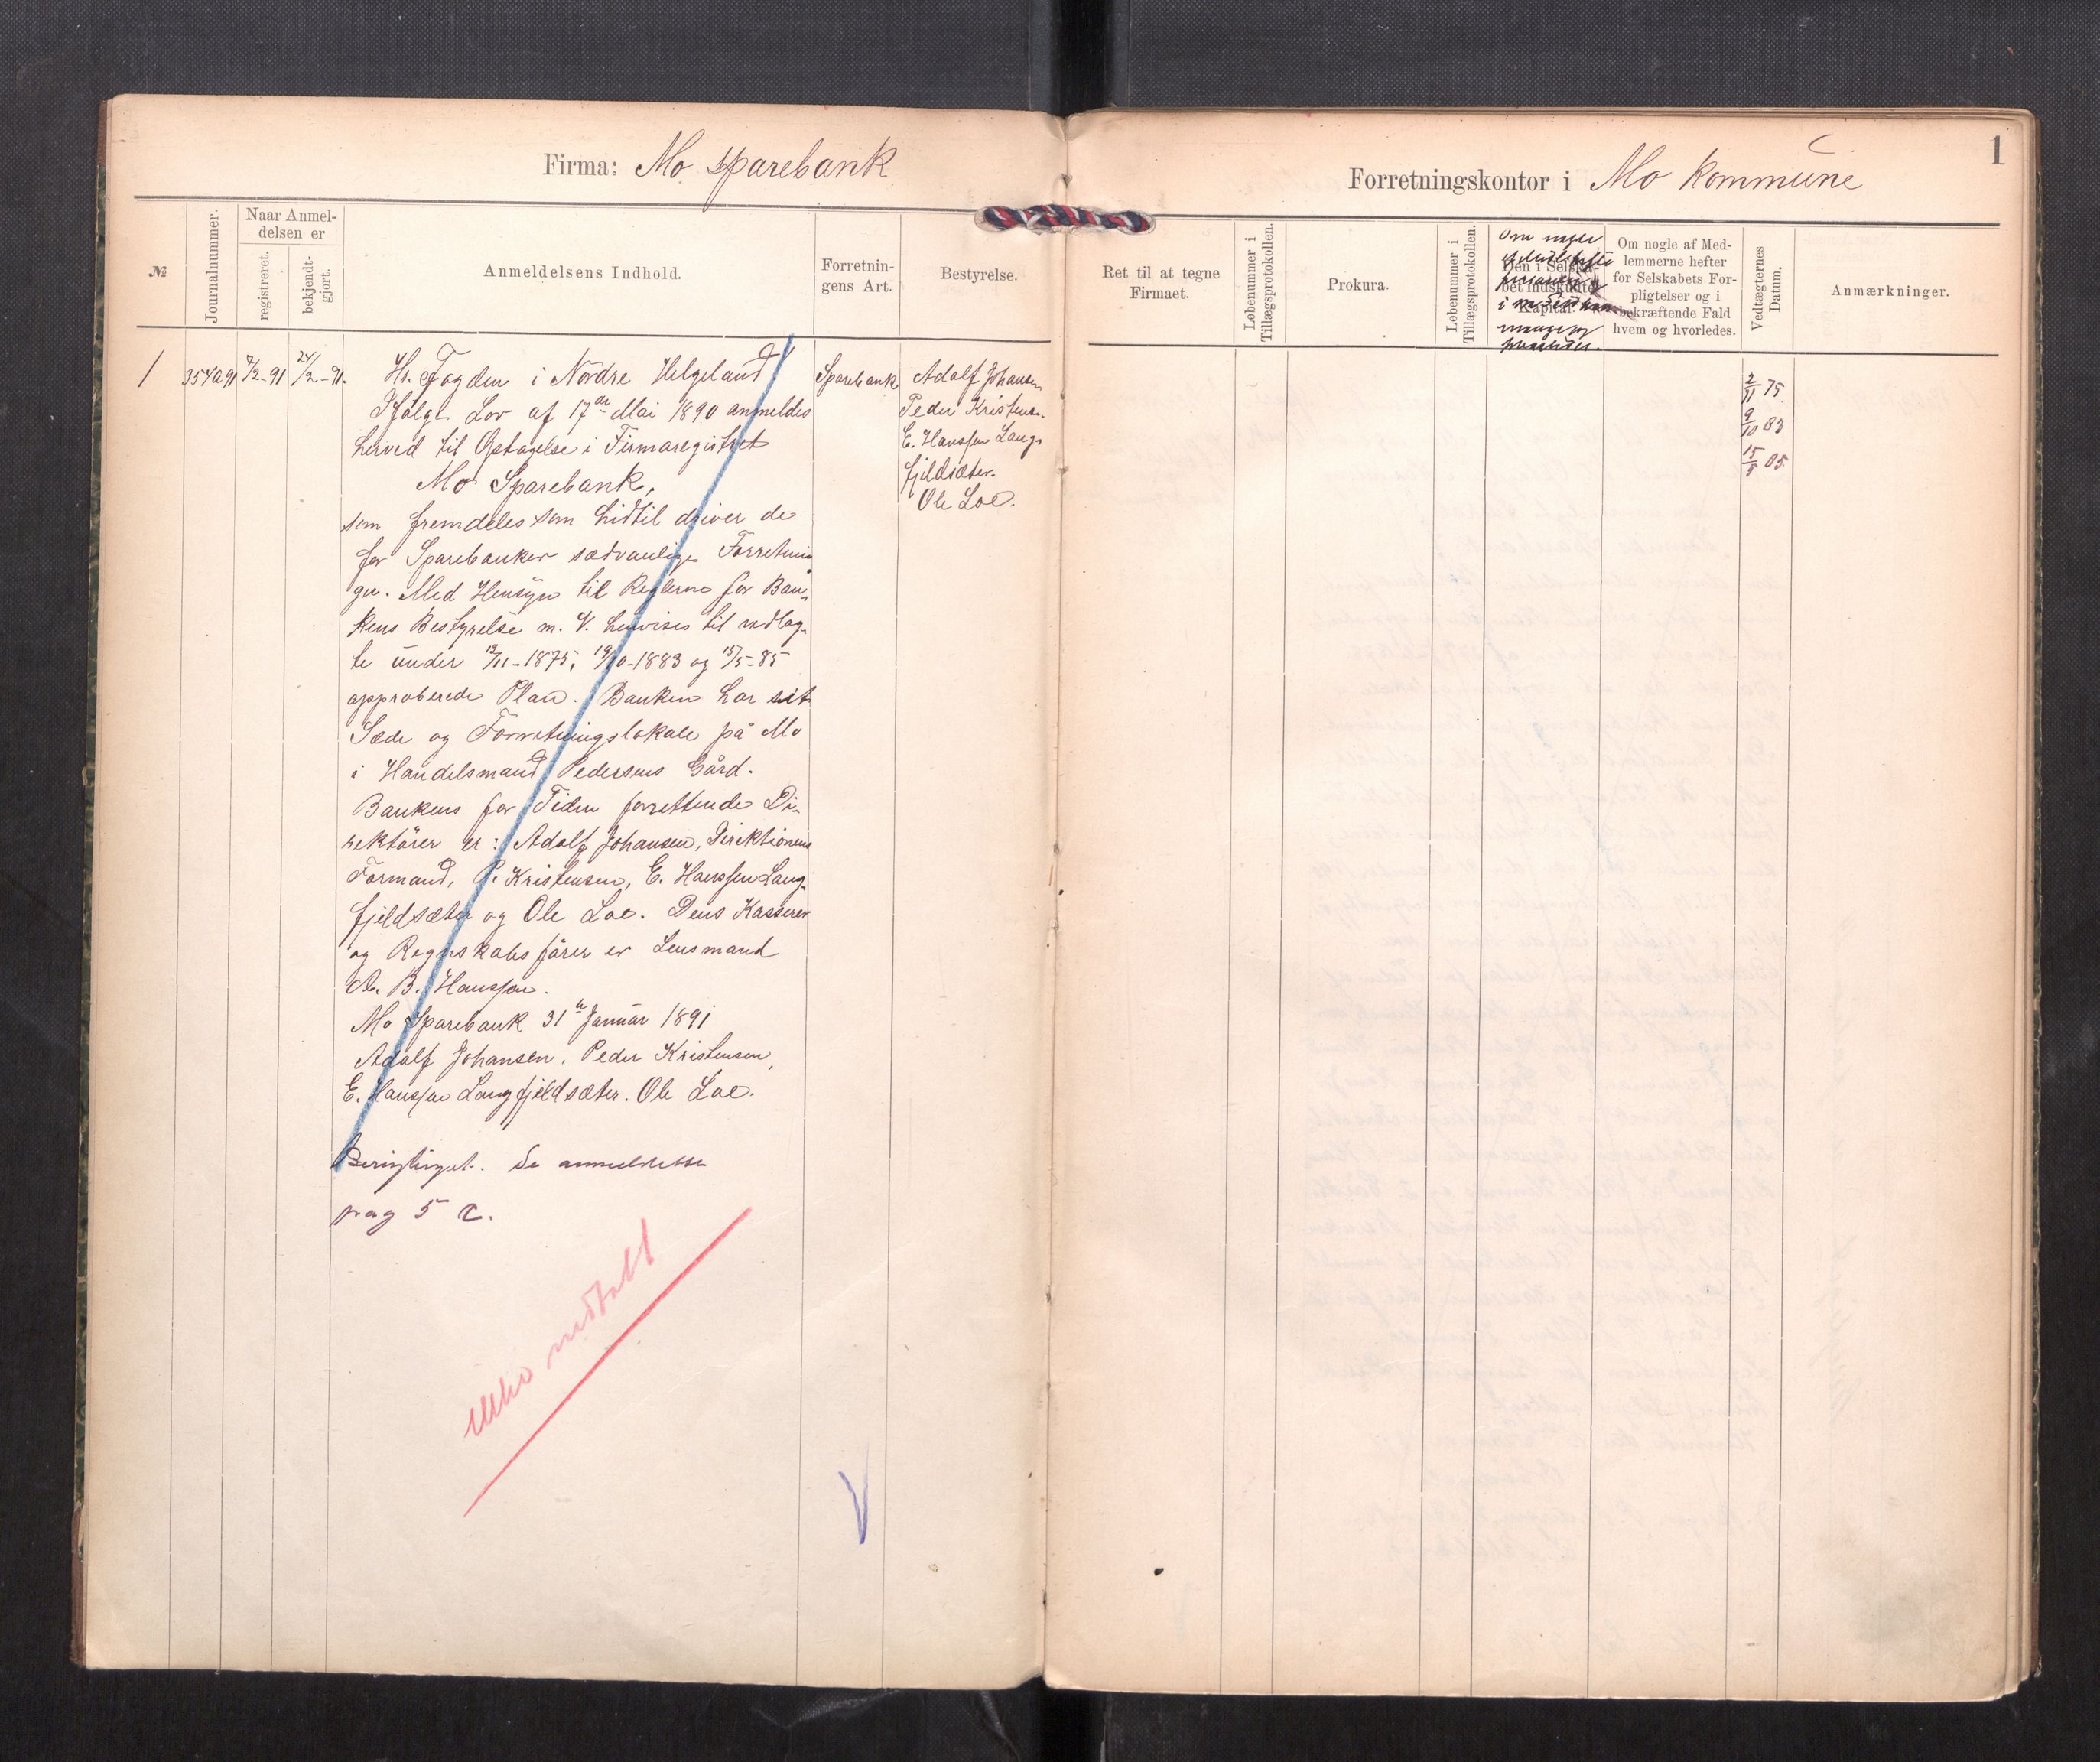 Firma: Mo sparebank
No
Journalnummer.
Naar Anmel-
delsen er
registreret.
bekjendt-
gjort.
Anmeldelsens Indhold.
Forretnin-
gens Art.
Bestyrelse.
1
354a91
7/2-91
24/2-91.
Hr. Fogden i Nordre Helgeland!
Ifølge Lov af 17de Mai 1890 anmeldes
herved til Optagelse i Firmaregistret
Mo Sparebank,
som fremdeles som hidtil driver de
for Sparebanker sædvanlige Forretnin
ger. Med Hensyn til Reglerne for Ban-
kens Bestyrelse m. V. henvises til vedlag-
te under 12/11-1875, 19/10-1883 og 15/5-85
approberede Plan. Banken har sit
Sæde og Forretningslokale på Mo
i Handelsmand Pedersens Gård.
Bankens for Tiden forrettende Di-
rektører er: Adolf Johansen, Direktionens
Formand, P. Kristensen, E. Hanssen Lang-
fjeldsæter og Ole Loe. Dens Kasserer
og Regnskabsfører er Lensmand
B. Hanssen.
Mo Sparebank 31te Januar 1891
Adolf Johansen, Peder Kristensen,
E. Hanssen Langfjeldsæter. Ole Loe.
Berigtiget. Se anmeldelse
pag 5 c.
ikke indtalt
Sparebank
Adolf Johansen
Peder Kristens.
E. Hanssen Lang-
fjeldsæter.
Ole Loe.
1
Forretningskontor i Mo Kommune
Ret til at tegne
Firmaet.
Løbenummer i
Tillægsprotokollen.
Prokura.
Løbenummer i
Tillægsprotokollen.
Den i Selska-
bet indskudte
Kapital.
Om nogle af Med-
lemmerne hefter
for Selskabets For-
pligtelser og i
bekræftende Fald
hvem og hvorledes.
Vedtægternes
Datum.
Anmærkninger.
2/11 75.
9/10 83
15/5 85.